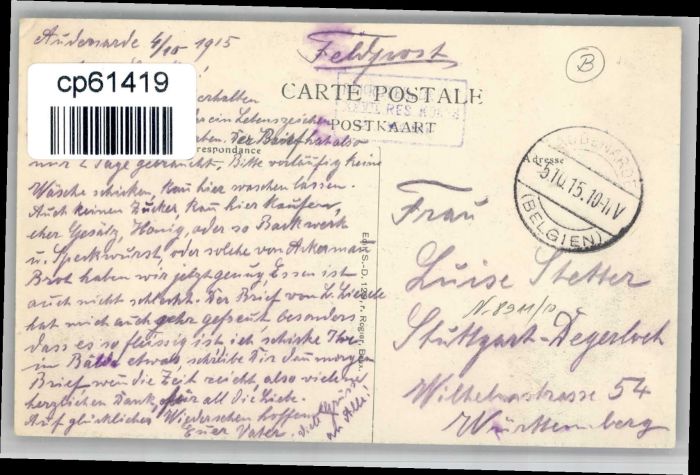 Audenarde 4/10 1915
Feldpost
B
cp61419
CARTE POSTALE
POSTKAART
erhalten
ein Lebenszeichen
Der Brief hat also
respondance
nur 2 Tage gebraucht, Bitte vorläufig keine
Wäsche schicken, kan hier waschen lassen.
Auch keinen Zucker, kan hier kaufen,
eher Gesälz, Honig, oder so Backwerk
u. Speckwurst, oder solche von Ackerman
Brot haben wir jetzt genug Essen ist
auch nicht schlecht. Der Brief von L.
hat mich auch sehr gefreut, besonders
dass es so fleissig ist, ich schicke Ihr
in Bälde etwas, schreibe Dir den morgen
Brief wen die Zeit reicht, also viel
herzlichen Dank, für all die Liebe.
Auf glückliches Wiedersehen hoffen
Euer Vater.
viele Grüsse
an Alle!
Edit S.-D., 129 r. Rogier, Brux.
Adresse
AUDENARDE
5.10.15.10-11V
(BELGIEN)
Frau
Luise Stetter
N-8911/0
Stuttgart-Degerloch
Wilhelmstrasse 54
Württemberg